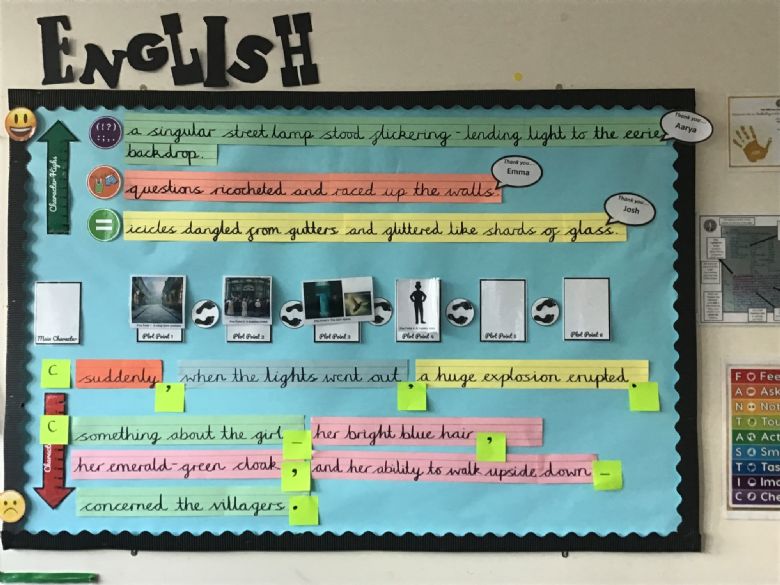 ENGLISH
a singular street lamp stood flickering - lending light to the eerie
backdrop.
Thank you...
Aarya
questions ricocheted and raced up the walls
Thank you...
Emma
icicles dangled from gutters and glittered like shards of glass.
Thank you...
Josh
Character Highs
Main Character
Plot Point 1
Plot Point 2
Plot Point 3
Plot Point 4
Plot Point 5
Plot Point 6
C suddenly, when the lights went out, a huge explosion erupted.
C something about the girl – her bright blue hair,
her emerald-green cloak, and her ability to walk upside down –
concerned the villagers.
F Fee
A Ask
N Not
T Tou
A Act
S Sm
T Tas
I Ima
C Che